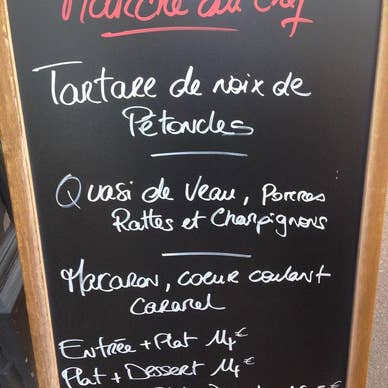 Marché du Chef
Tartare de noix de
Pétoncles
Quasi de Veau, Pommes
Rattes et Champignons
Macaron, coeur coulant
Caramel
Entrée + Plat 14€
Plat + Dessert 14€